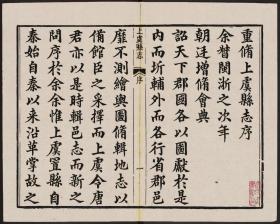 重脩上虞縣志序
余督閩浙之次年
朝廷增脩會典
詔天下郡國各以圖獻於是
内而圻輔外而各行省郡邑
上虞縣志
序
一
靡不測繪輿圖脩輯地志以
備館臣之采擇而上虞令唐
君亦以是時輯邑志而新之
問序於余余惟上虞置縣自
秦始自秦以來沿革掌故之